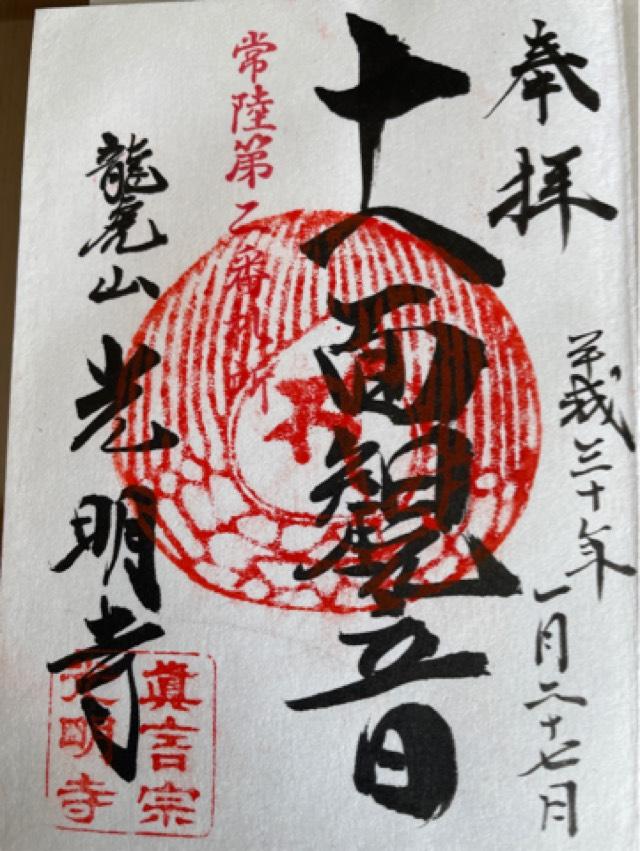 奉拝
平成三十年一月二十七日
十八面観音
常陸第二番札所
龍虎山 光明寺
眞言宗
光明寺